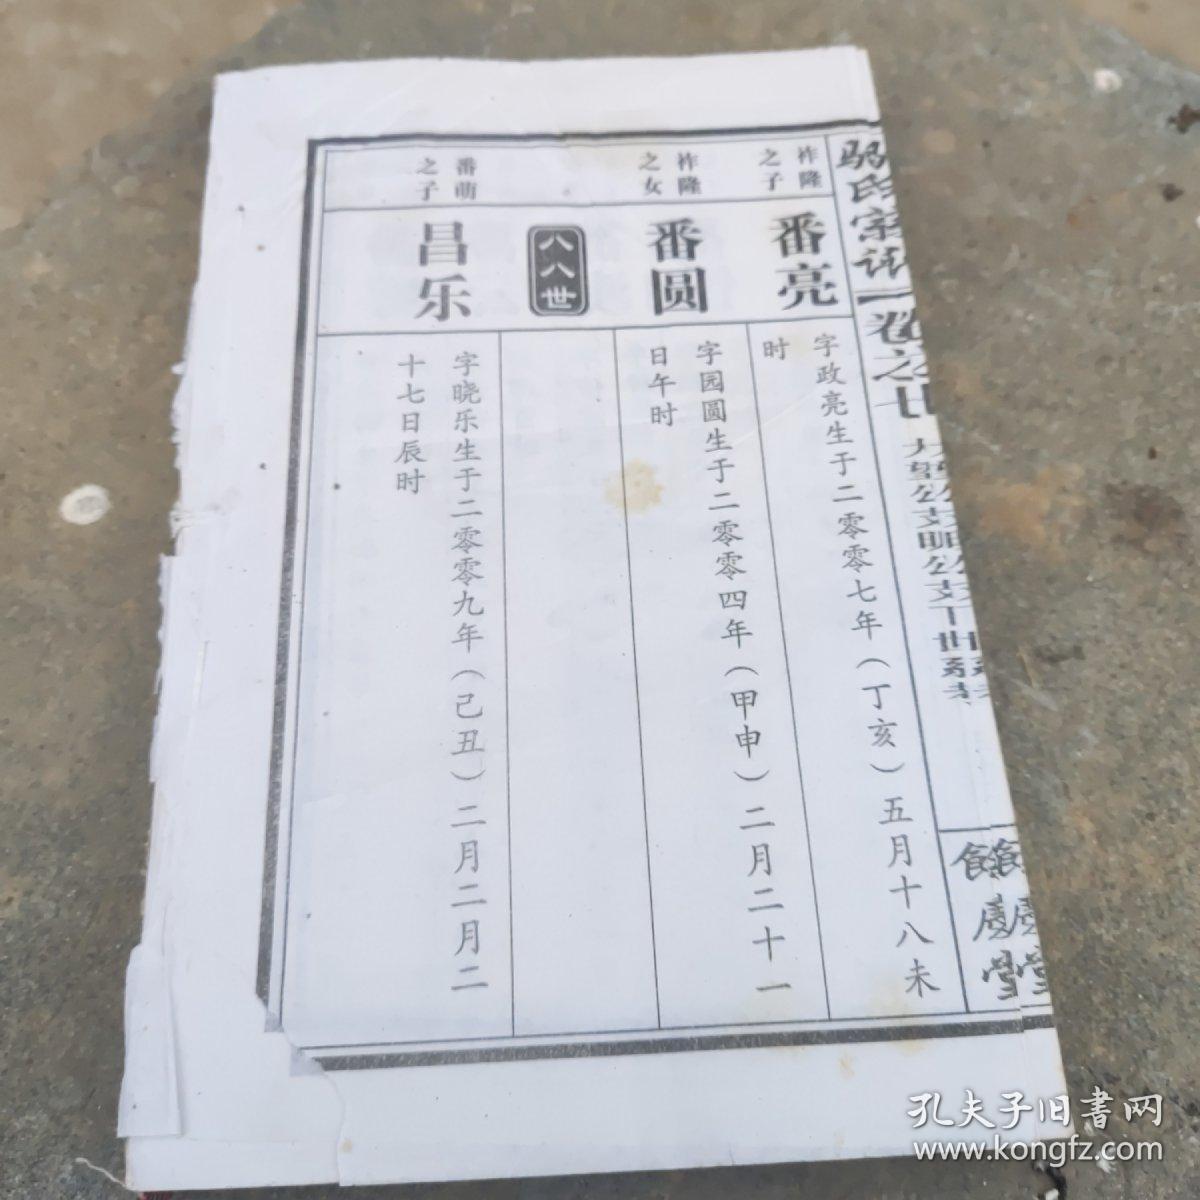 祚隆
之子
番亮
字政亮生于二零零七年（丁亥）五月十八未
时
祚隆
之女
番圆
字园圆生于二零零四年（甲申）二月二十一
日午时
八八世
番萌
之子
昌乐
字晓乐生于二零零九年（己丑）二月二月二
十七日辰时
孔夫子旧書网
www.kongfz.com